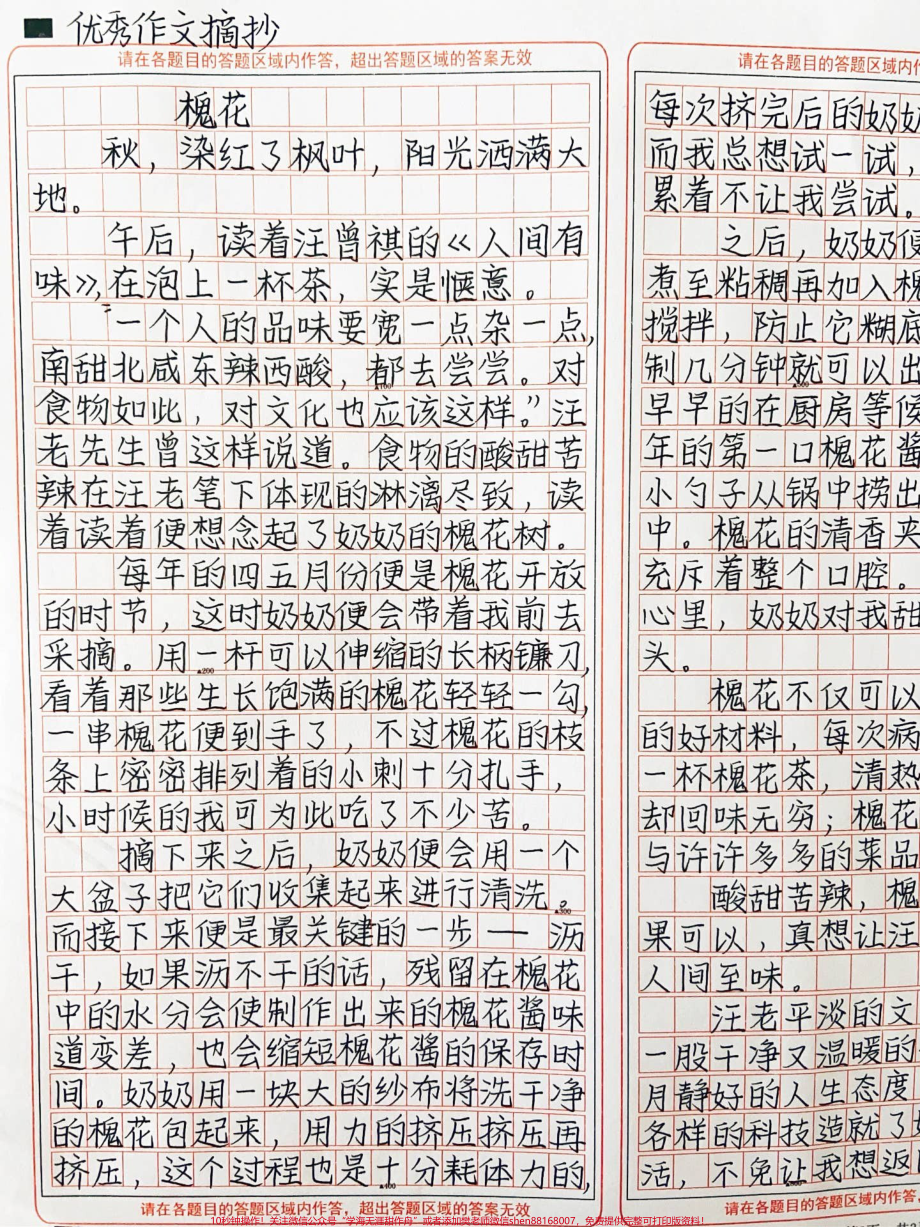 优秀作文摘抄
请在各题目的答题区域内作答，超出答题区域的答案无效
槐花
秋，染红了枫叶，阳光洒满大
地。
午后，读着汪曾祺的《人间有
味》，在泡上一杯茶，实是惬意。
“一个人的品味要宽一点杂一点，
南甜北咸东辣西酸，都去尝尝。对
食物如此，对文化也应该这样。”汪
老先生曾这样说道。食物的酸甜苦
辣在汪老笔下体现的淋漓尽致，读
着读着便想念起了奶奶的槐花树。
每年的四五月份便是槐花开放
的时节，这时奶奶便会带着我前去
采摘。用一杆可以伸缩的长柄镰刀，
看着那些生长饱满的槐花轻轻一勾，
一串槐花便到手了，不过槐花的枝
条上密密排列着的小刺十分扎手，
小时候的我可为此吃了不少苦。
摘下来之后，奶奶便会用一个
大盆子把它们收集起来进行清洗。
而接下来便是最关键的一步——沥
干，如果沥不干的话，残留在槐花
中的水分会使制作出来的槐花酱味
道变差，也会缩短槐花酱的保存时
间。奶奶用一块大的纱布将洗干净
的槐花包起来，用力的挤压挤压再
挤压，这个过程也是十分耗体力的，
请在各题目的答题区域内作答，超出答题区域的答案无效
请在各题目的答题区域内作
每次挤完后的奶奶
而我总想试一试，
累着不让我尝试。
之后，奶奶便
煮至粘稠再加入槐
搅拌，防止它糊底
制几分钟就可以出
早早的在厨房等候
年的第一口槐花酱
小勺子从锅中捞出
中。槐花的清香夹
充斥着整个口腔。
心里，奶奶对我甜
头。
槐花不仅可以
的好材料，每次病
一杯槐花茶，清热
却回味无穷；槐花
与许许多多的菜品
酸甜苦辣，槐
果可以，真想让汪
人间至味。
汪老平淡的文
一股干净又温暖的
月静好的人生态度
各样的科技造就了
活，不免让我想返
请在各题目的答题区域内作
10秒钟操作！关注微信公众号“学海无涯甜作舟”或者添加樊老师微信shen88168007，免费提供完整可打印版资料！